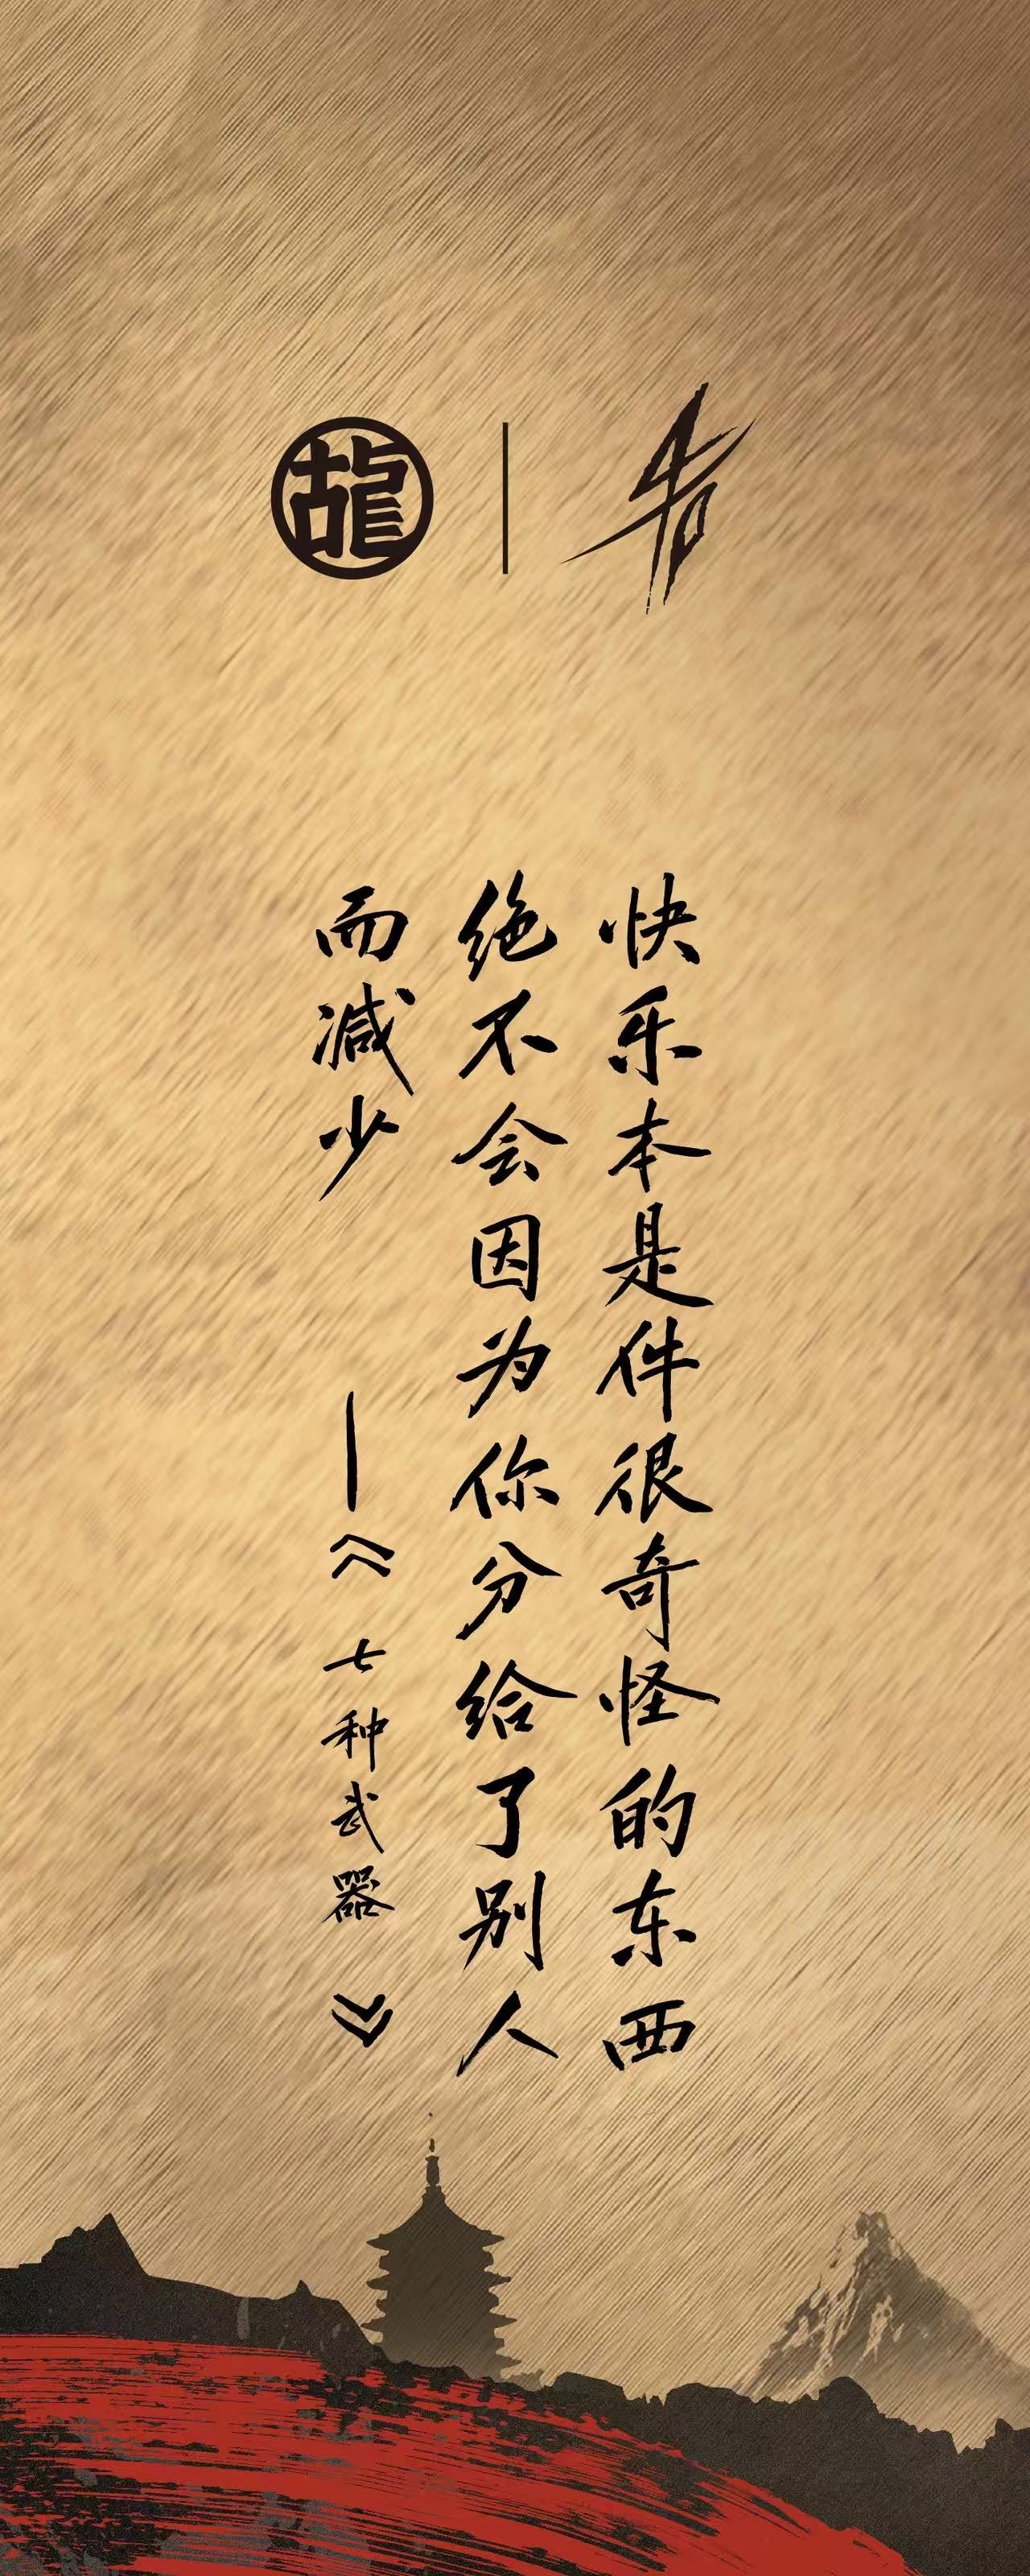 快乐本是件很奇怪的东西
绝不会因为你分给了别人
而减少
—《七种武器》